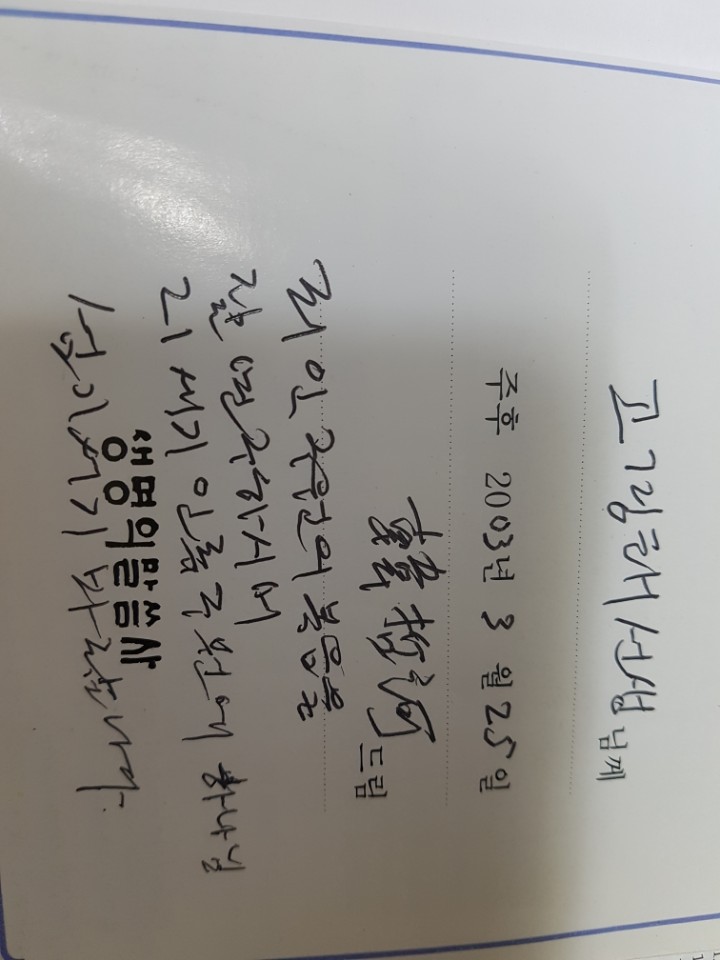 고경래 선생 님께
주후 2003년 3월 25일
韓哲河 드림
죄인 구원의 복음을
잘 하시며
21세기 인류구원에 하나님
생명의말씀사
바랍니다.